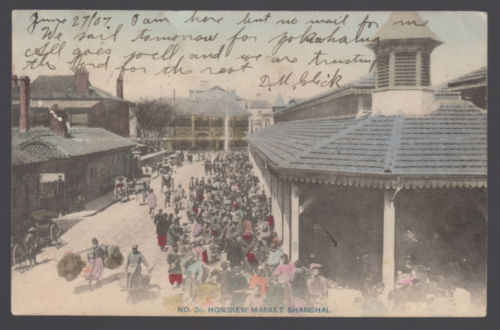 June 27/07. I am here but no mail for me
We sail tomorrow for Yokohama
All goes well and we are trusting
the Lord for the rest
NO. 30. HONGKEW MARKET SHANGHAI.